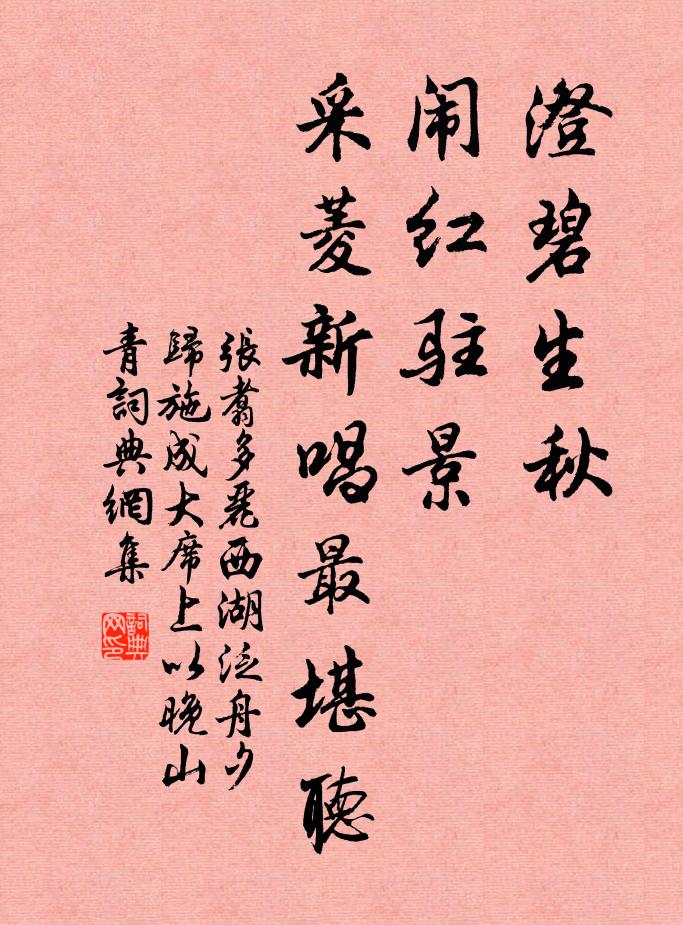 澄碧生秋
闹红驻景
采菱新唱最堪聽
張翥多麗西湖泛舟夕
歸施成大席上以晚山
青詞典網集
詞典
网印